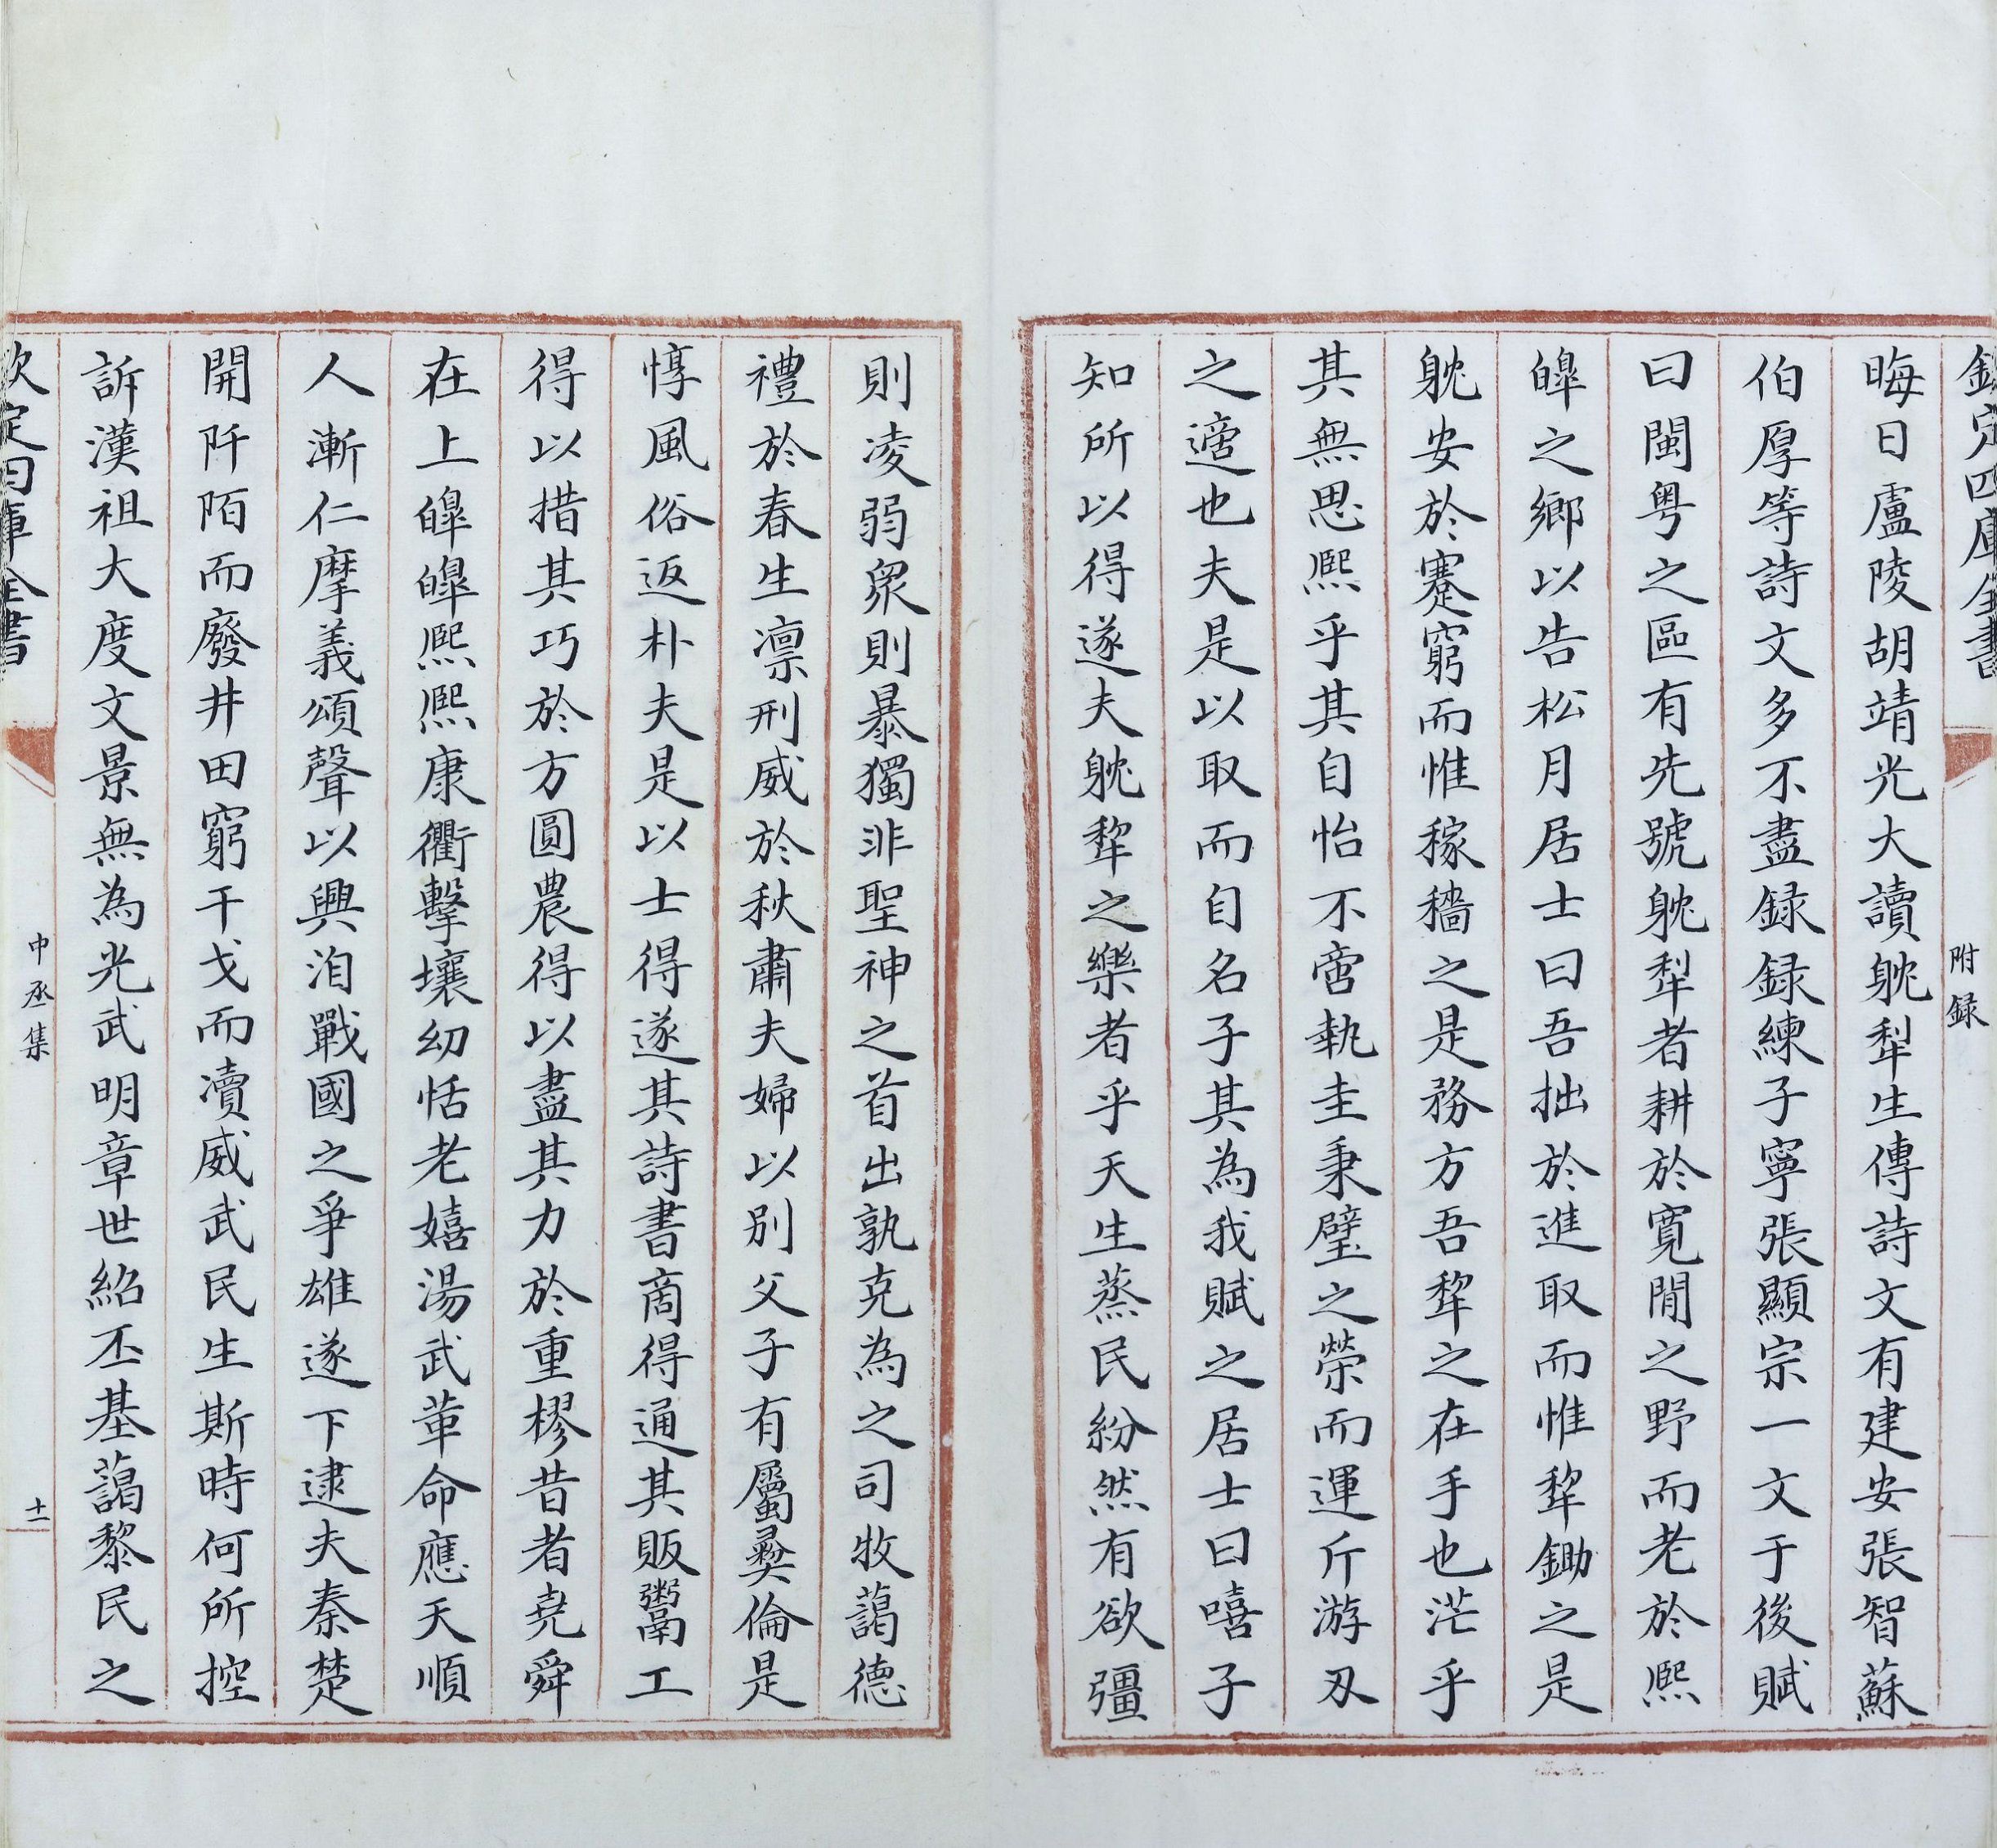 欽定四庫全書
附録
晦日盧陵胡靖光大讀躭犁生傳詩文有建安張智蘇
伯厚等詩文多不盡録録練子寧張顯宗一文于後賦
曰閩粤之區有先號躭犁者耕於寛閒之野而老於熙
皥之鄉以告松月居士曰吾拙於進取而惟犂鋤之是
躭安於蹇窮而惟稼穡之是務方吾犂之在手也茫乎
其無思熙乎其自怡不啻執圭秉璧之榮而運斤游刃
之適也夫是以取而自名子其為我賦之居士曰嘻子
知所以得遂夫躭犂之樂者乎天生蒸民紛然有欲彊
則凌弱衆則暴獨非聖神之首出孰克為之司牧藹德
禮於春生凛刑威於秋肅夫婦以别父子有屬彛倫是
惇風俗返朴夫是以士得遂其詩書商得通其販鬻工
得以措其巧於方圓農得以盡其力於重穋昔者堯舜
在上皥皥熙熙康衢擊壤幼恬老嬉湯武革命應天順
人漸仁摩義頌聲以興洎戰國之爭雄遂下逮夫秦楚
開阡陌而廢井田窮干戈而凟威武民生斯時何所控
訴漢祖大度文景無為光武明章世紹丕基藹黎民之
欽定四庫全書
中丞集
十一